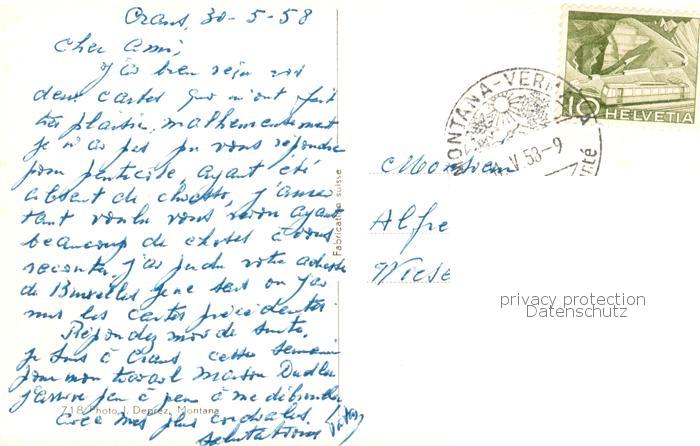 Crans, 30-5-58
Cher ami,
J'ai bien reçu vos
deux cartes qui m'ont fait
très plaisir, malheureusement
je n'ai pas pu vous répondre
pour Pentecôte, ayant été
absent de
tant voulu vous voir ayant
beaucoup de choses à vous
raconter, j'ai perdu votre adresse
de Bruxelles je ne sais où j'ai
mis les cartes précédentes.
Répondez moi de suite,
je suis à Crans cette semaine
pour mon travail maison
j'arrive peu à peu à me débrouiller
avec mes plus cordiales
salutations
718 Photo J. Deprez, Montana
Fabrication suisse
MONTANA-VERMALA
V.58-9
10 HELVETIA
Monsieur
Alfre
Wiese
privacy protection
Datenschutz